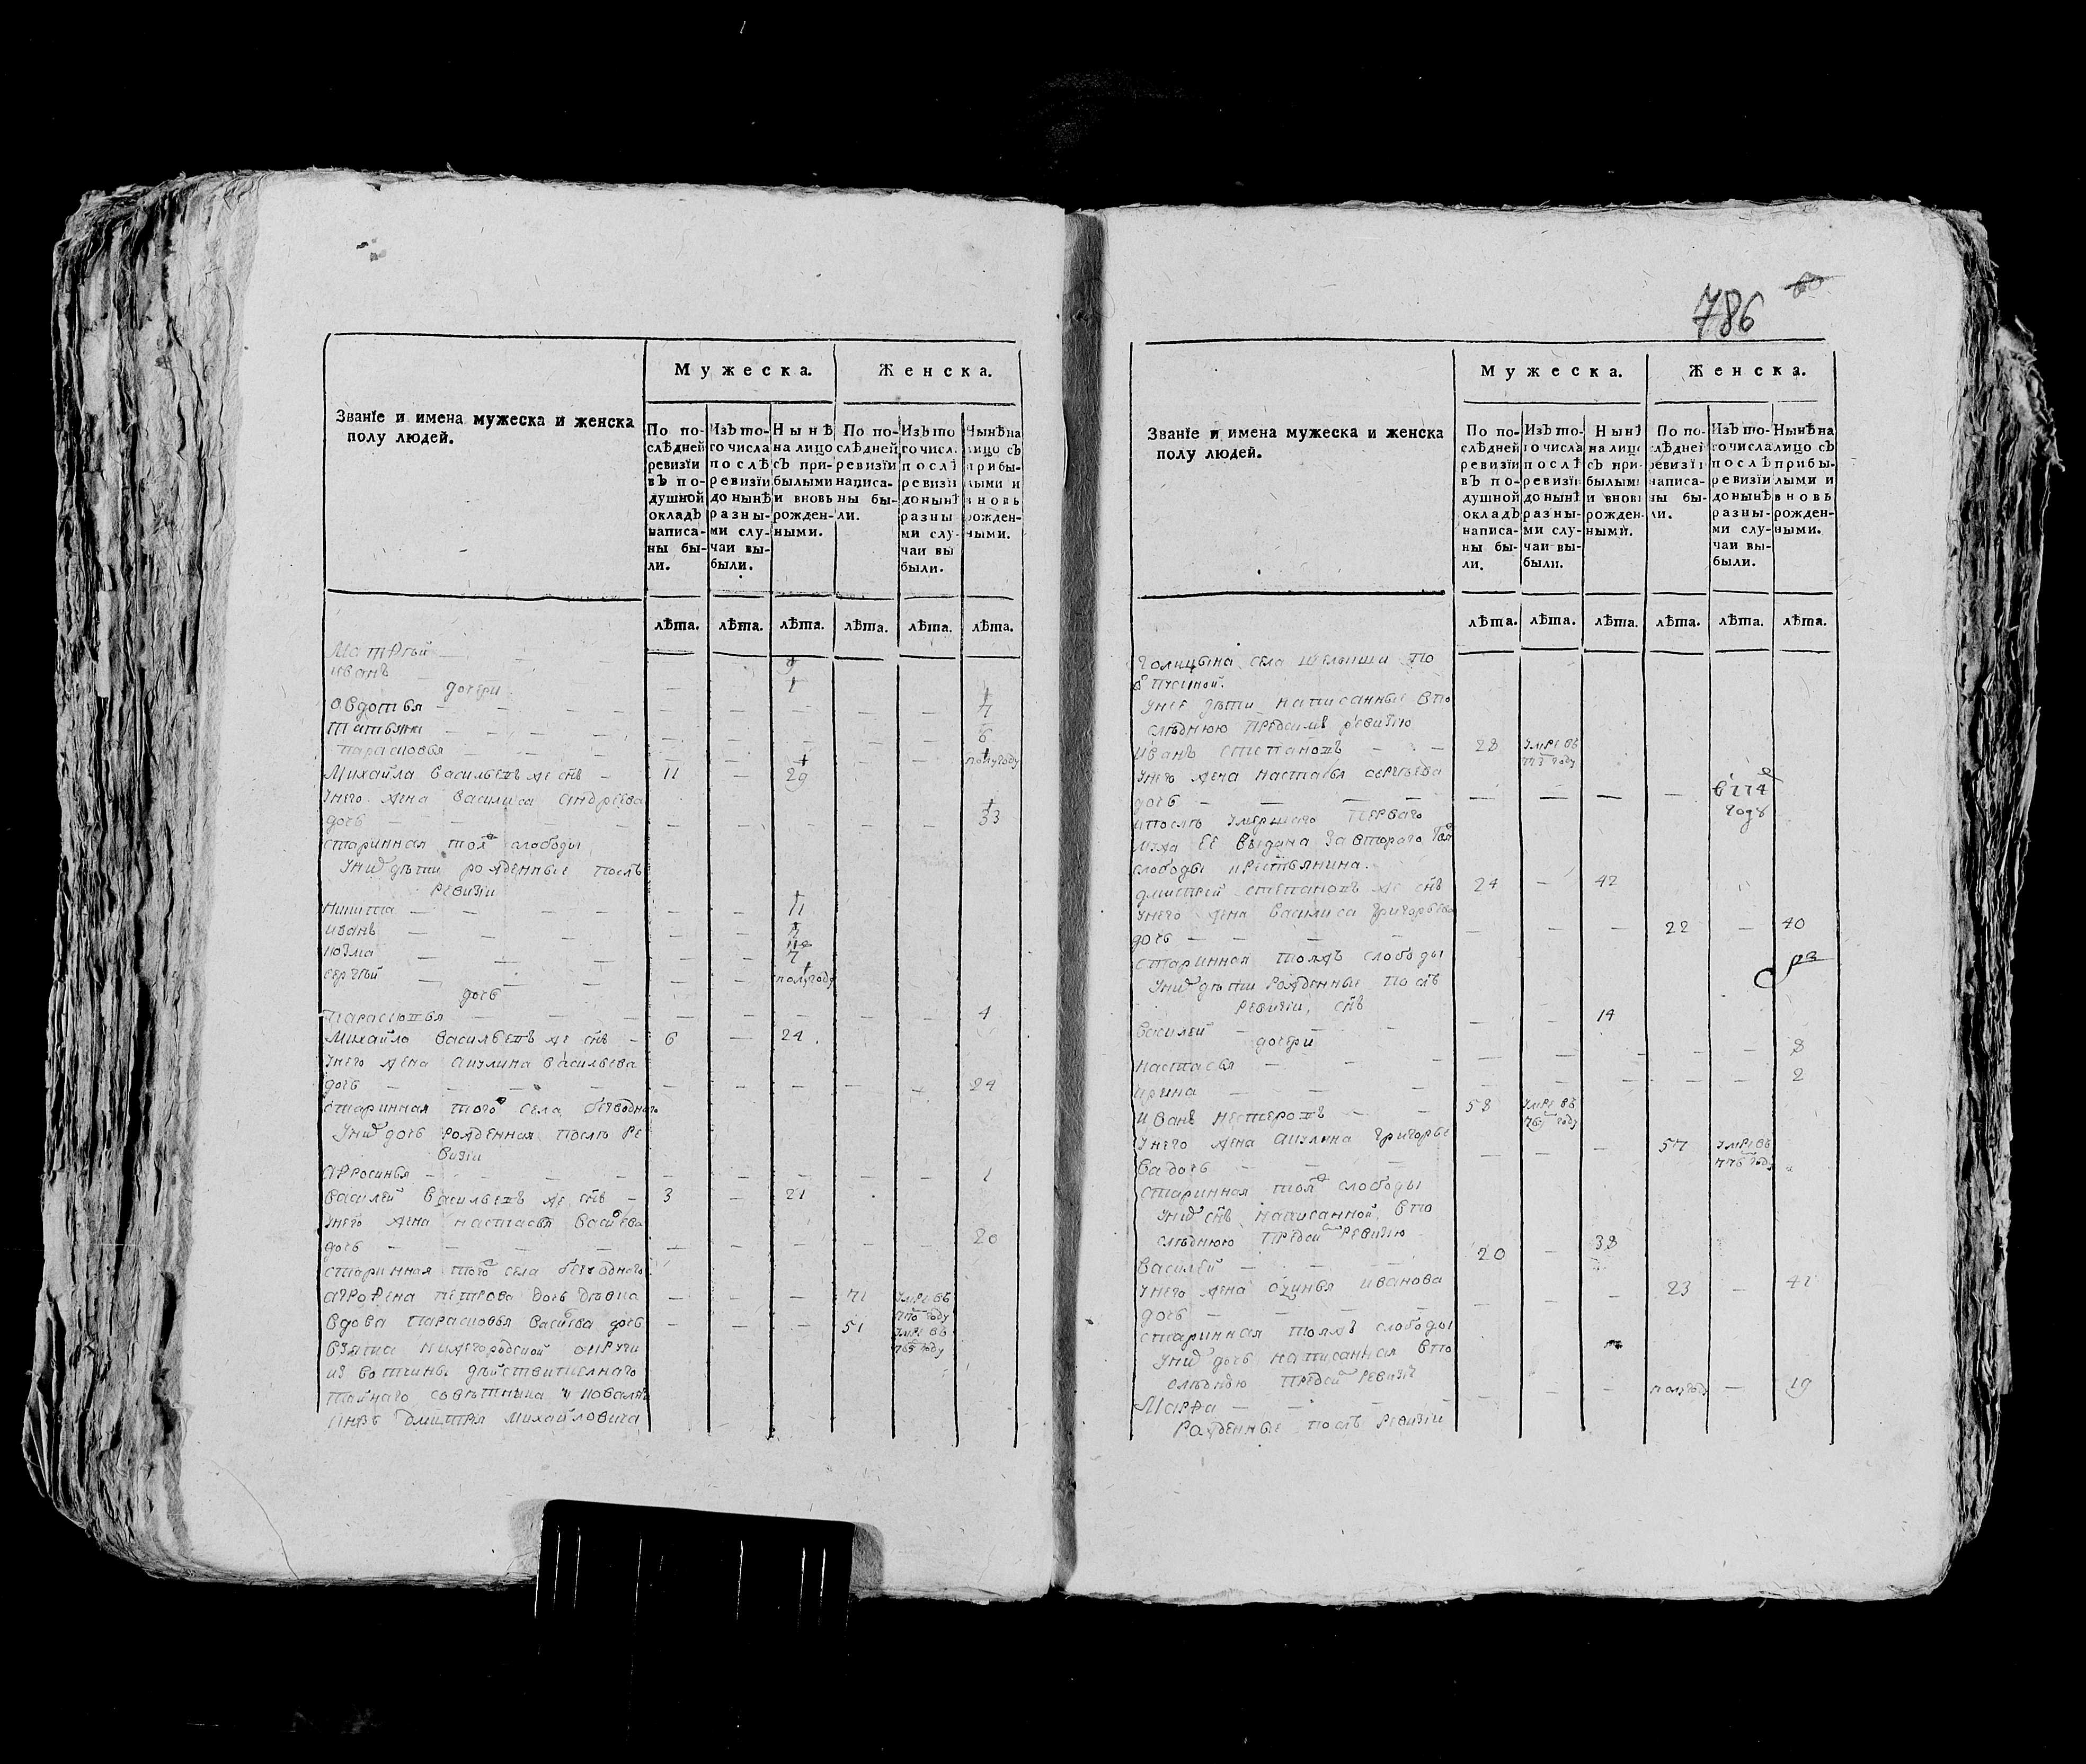 Званїе и имена мужеска и женска
полу людей.
Мужеска.
Женска.
По по-
слѣдней
ревизїи
въ по-
душной
окладъ
написа-
ны бы-
ли.
Изъ то-
го числа
послѣ
ревизїи
до нынѣ
разны-
ми слу-
чаи вы-
были.
Нынѣ
на лицо
съ при-
былыми
и вновь
рожден-
ными.
По по-
слѣдней
ревизїи
написа-
ны бы-
ли.
Изъ то
го числ.
послѣ
ревизїи
до нынѣ
разны
ми слу-
чаи вы
были.
Нынѣ на
лицо съ
прибы-
лыми и
вновь
рожден-
ными.
лѣта. лѣта. лѣта. лѣта. лѣта. лѣта.
Матвѣй
иванъ 9
дочери 1
овдотья 7
татьяна 6
парасковья полугоду
Михайла васильевъ же снъ 11 — 29
унего жена василиса андреева
дочь 33
старинная тояж слободы
уних дѣти рожденные послѣ
ревизіи
никита 11
иванъ
козма 7
сергѣй полугоду
дочь
парасковья 4
Михайло васильевъ же снъ 6 — 24
унего жена акулина васильева
дочь 24
старинная того ж села безводного
уних дочь рожденная послѣ ре
визіи
афросинья 1
василей васильевъ же снъ 3 — 21
унего жена настасья васильева
дочь 20
старинная того ж села безводного
агрофена петрова дочь 71 умре въ
770 году
вдова парасковья васильева дочь 51 умре въ
765 году
взята нижегородской округи
из вотчины дѣйствителнаго
тайнаго совѣтника и кавалера
князь дмитрея михайловича
786
Званїе и имена мужеска и женска
полу людей.
Мужеска.
Женска.
По по-
слѣдней
ревизїи
въ по-
душной
окладъ
написа-
ны бы-
ли.
Изъ то-
го числа
послѣ
ревизїи
до нынѣ
разны-
ми слу-
чаи вы-
были.
Нынѣ
на лицо
съ при-
былыми
и вновь
рожден-
ными.
По по-
слѣдней
ревизїи
написа-
ны бы-
ли.
Изъ то-
го числа
послѣ
ревизїи
до нынѣ
разны-
ми слу-
чаи вы-
были.
Нынѣ на
лицо съ
прибы-
лыми и
вновь
рожден-
ными.
лѣта. лѣта. лѣта. лѣта. лѣта. лѣта.
голицына села по
унее дѣти написанные впо
слѣднюю предсимъ ревизию
иванъ степановъ 28 умре въ
773 году
унего жена настасья сергѣева
дочь в 774
году
ипослѣ умершаго перваго
мужа ее выдана за второго тояж
слободы крестьянина.
дмитрей степановъ же снъ 24 — 42
унего жена василиса григорьева
дочь 22 — 40
старинная тояжъ слободы
уних дѣти рожденные послѣ
ревизіи, снъ
василей 14
дочери
настасья 8
ирина 2
иванъ нестеровъ 58 умре въ
767 году
унего жена акулина григорье
ва дочь 57 умре въ
776 году
старинная тояж слободы
уних снъ написанной впо
слѣднюю предсим ревизию
василей 20 — 38
унего жена иванова
дочь 23 — 41
старинная тояжъ слободы
уних дочь написанная впо
слѣднюю предсим ревизію
Марфа полугоду — 19
рожденные послѣ ревизіи